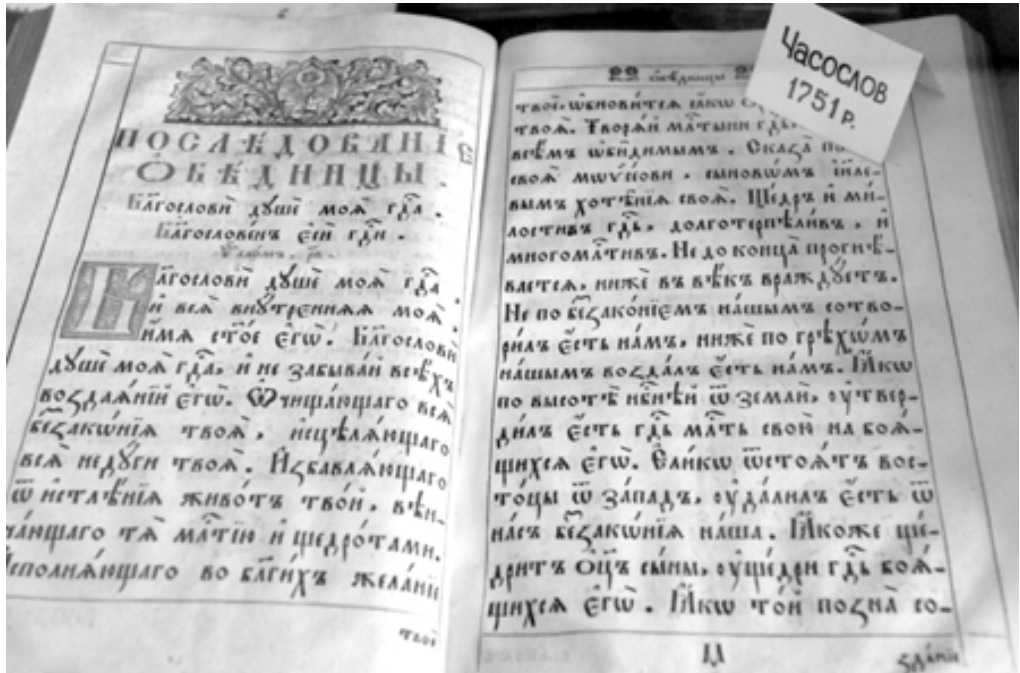 ПОСЛѢДОВАНІЕ
ѠБѢДНИЦЫ
Бл҃гословѝ дꙋшѐ моѧ̀ гдⷭ҇а .
Бл҃гословенъ є҆сѝ гдⷭ҇и .
Бл҃гословѝ дꙋшѐ моѧ̀ гдⷭ҇а ,
и҆ всѧ̀ внꙋ́тренняѧ моѧ̀ ,
и҆мѧ ст҃ое є҆гѡ̀ . Бл҃гословѝ
дꙋшѐ моѧ̀ гдⷭ҇а , и҆ не забыва́й всѣ́хъ
воздаѧ́нїй є҆гѡ̀ . Ѡ҆чища́ющаго всѧ̀
беззакѡ́нїѧ твоѧ̀ , и҆сцѣлѧ́ющаго
всѧ̀ недꙋ́ги твоѧ̀ . И҆збавлѧ́ющаго
ѿ и҆стлѣ́нїѧ живо́тъ тво́й , вѣн-
ча́ющаго тѧ̀ млⷭ҇тїю и҆ щедро́тами .
И҆сполнѧ́ющаго во бл҃ги́хъ жела́нїе
твоѐ
ѡ҆бѣ́дницы
твоѐ , ѡ҆бнови́тсѧ ꙗ҆́кѡ
твоѧ̀ . Творѧ́й млⷭ҇тыни гдⷭ҇ь ,
всѣ̑мъ ѡ҆би̑димымъ . Сказа̀
своѧ̀ мѡѷсе́ови , сыновѡ́мъ і҆и҃ле-
вымъ хотѣ̑нїѧ своѧ̀ . Ще́дръ и҆ ми-
лостивъ гдⷭ҇ь , долготерпѣли́въ , и҆
многомлⷭ҇тивъ . Не до конца̀ прогнѣ́-
ваетсѧ , нижѐ въ вѣ́къ враждꙋ́етъ .
Не по беззако́нїємъ на́шымъ сотво-
ри́лъ є҆́сть на́мъ , нижѐ по грѣхѡ́мъ
на́шымъ возда́лъ є҆́сть на́мъ . Ꙗ҆́кѡ
по высотѣ̀ нбⷭ҇нѣй ѿ землѝ , ѹ҆тверь-
ди́лъ є҆́сть гдⷭ҇ь млⷭ҇ть свою̀ на боѧ́-
щихсѧ є҆гѡ̀ . Є҆ли́кѡ ѿстоѧ́тъ вос-
то́цы ѿ за́падъ , ѹ҆дали́лъ є҆́сть ѿ
на́съ беззакѡ́нїѧ на́ша . Ꙗ҆́коже ще́-
дритъ ѻ҆ц҃ъ сы́ны , ѹ҆ще́дри гдⷭ҇ь боѧ́-
щихсѧ є҆гѡ̀ . Ꙗ҆́кѡ то́й позна̀ со-
зда́нїе
Часослов
1751 р.